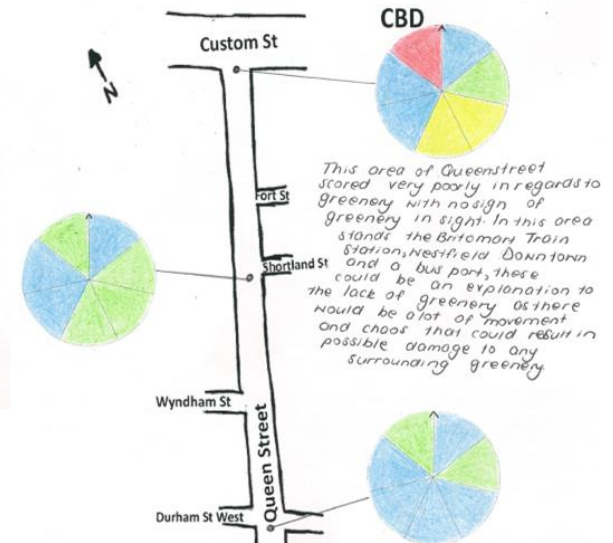 CBD
Custom St
N
This area of Queenstreet
scored very poorly in regards to
greenery with no sign of
greenery in sight. In this area
stands the Britomart Train
Station, Westfield Downtown
and a bus port, these
could be an explanation to
the lack of greenery as there
would be a lot of movement
and chaos that could result in
possible damage to any
surrounding greenery.
Fort St
Shortland St
Wyndham St
Queen Street
Durham St West